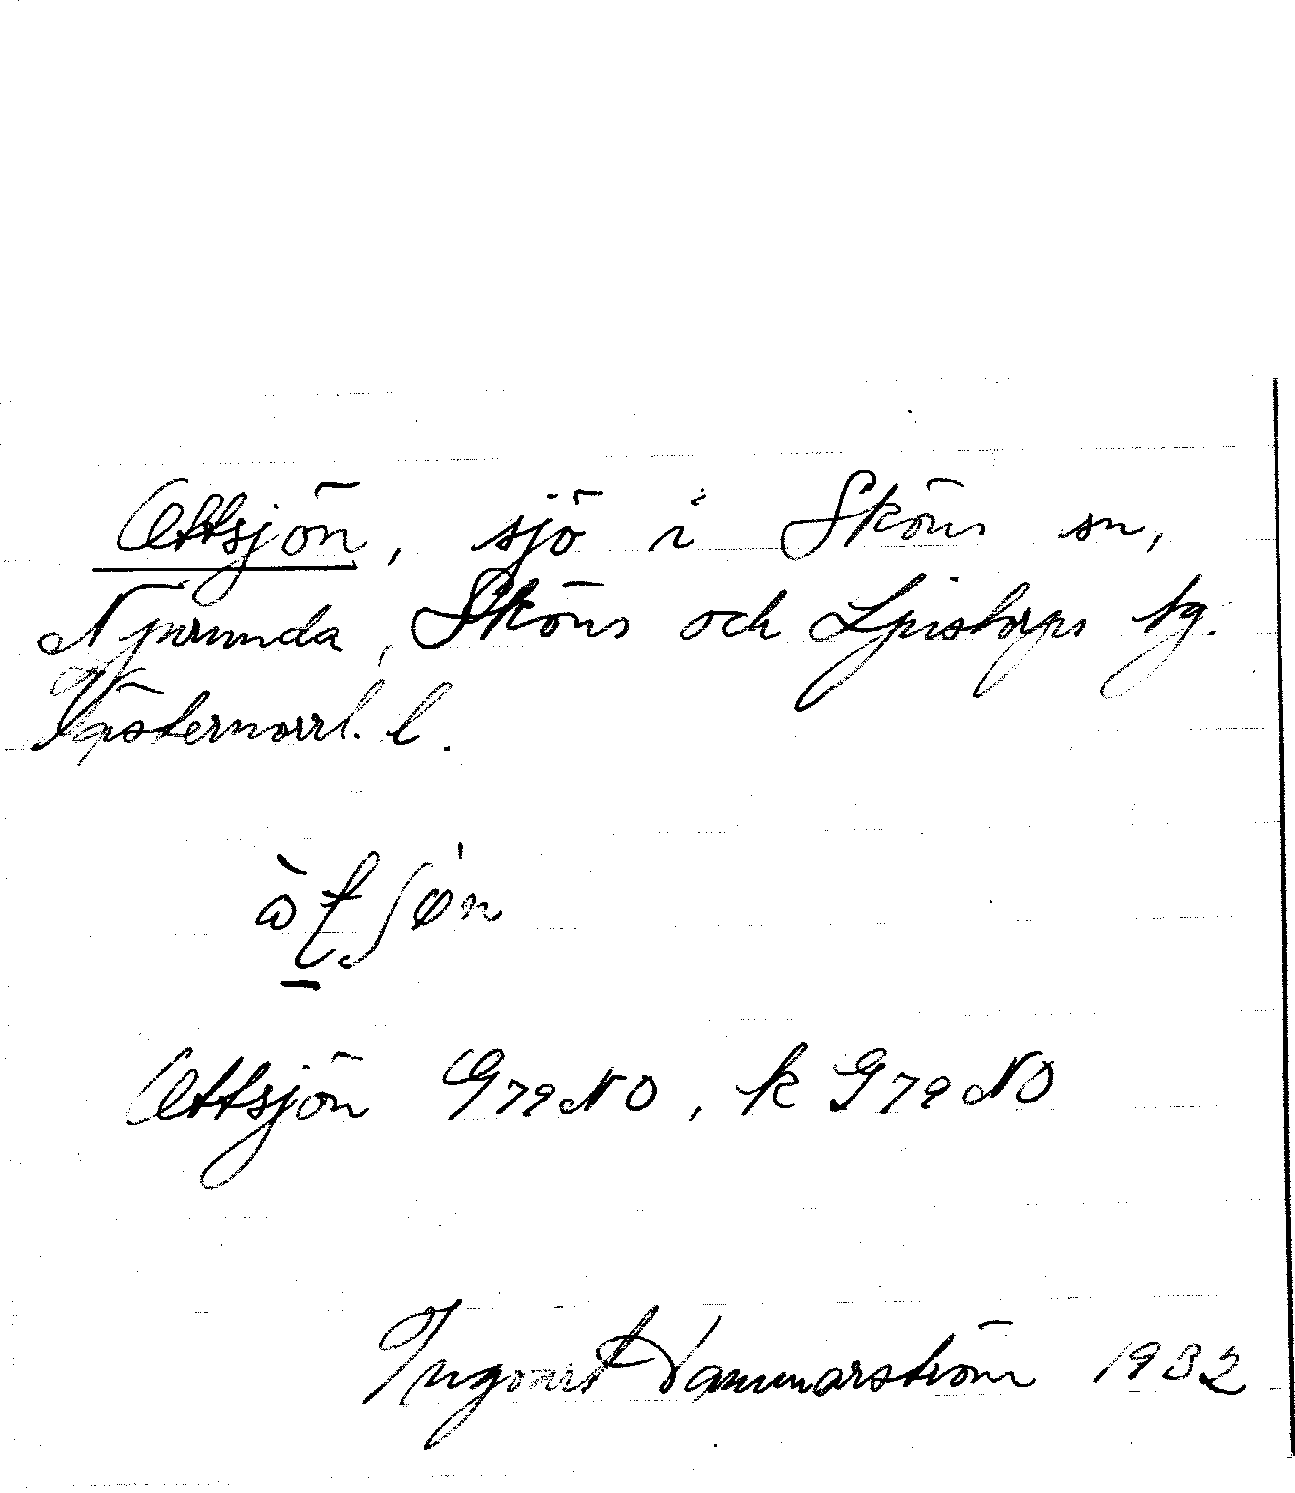 Åttsjön, sjö i Sköns sn,
Njurunda, Sköns och Ljustorps tg.
Västernorrl. l.
Åttsjön G 79 NO, k G 79 NO
Ingvart Hammarström 1932